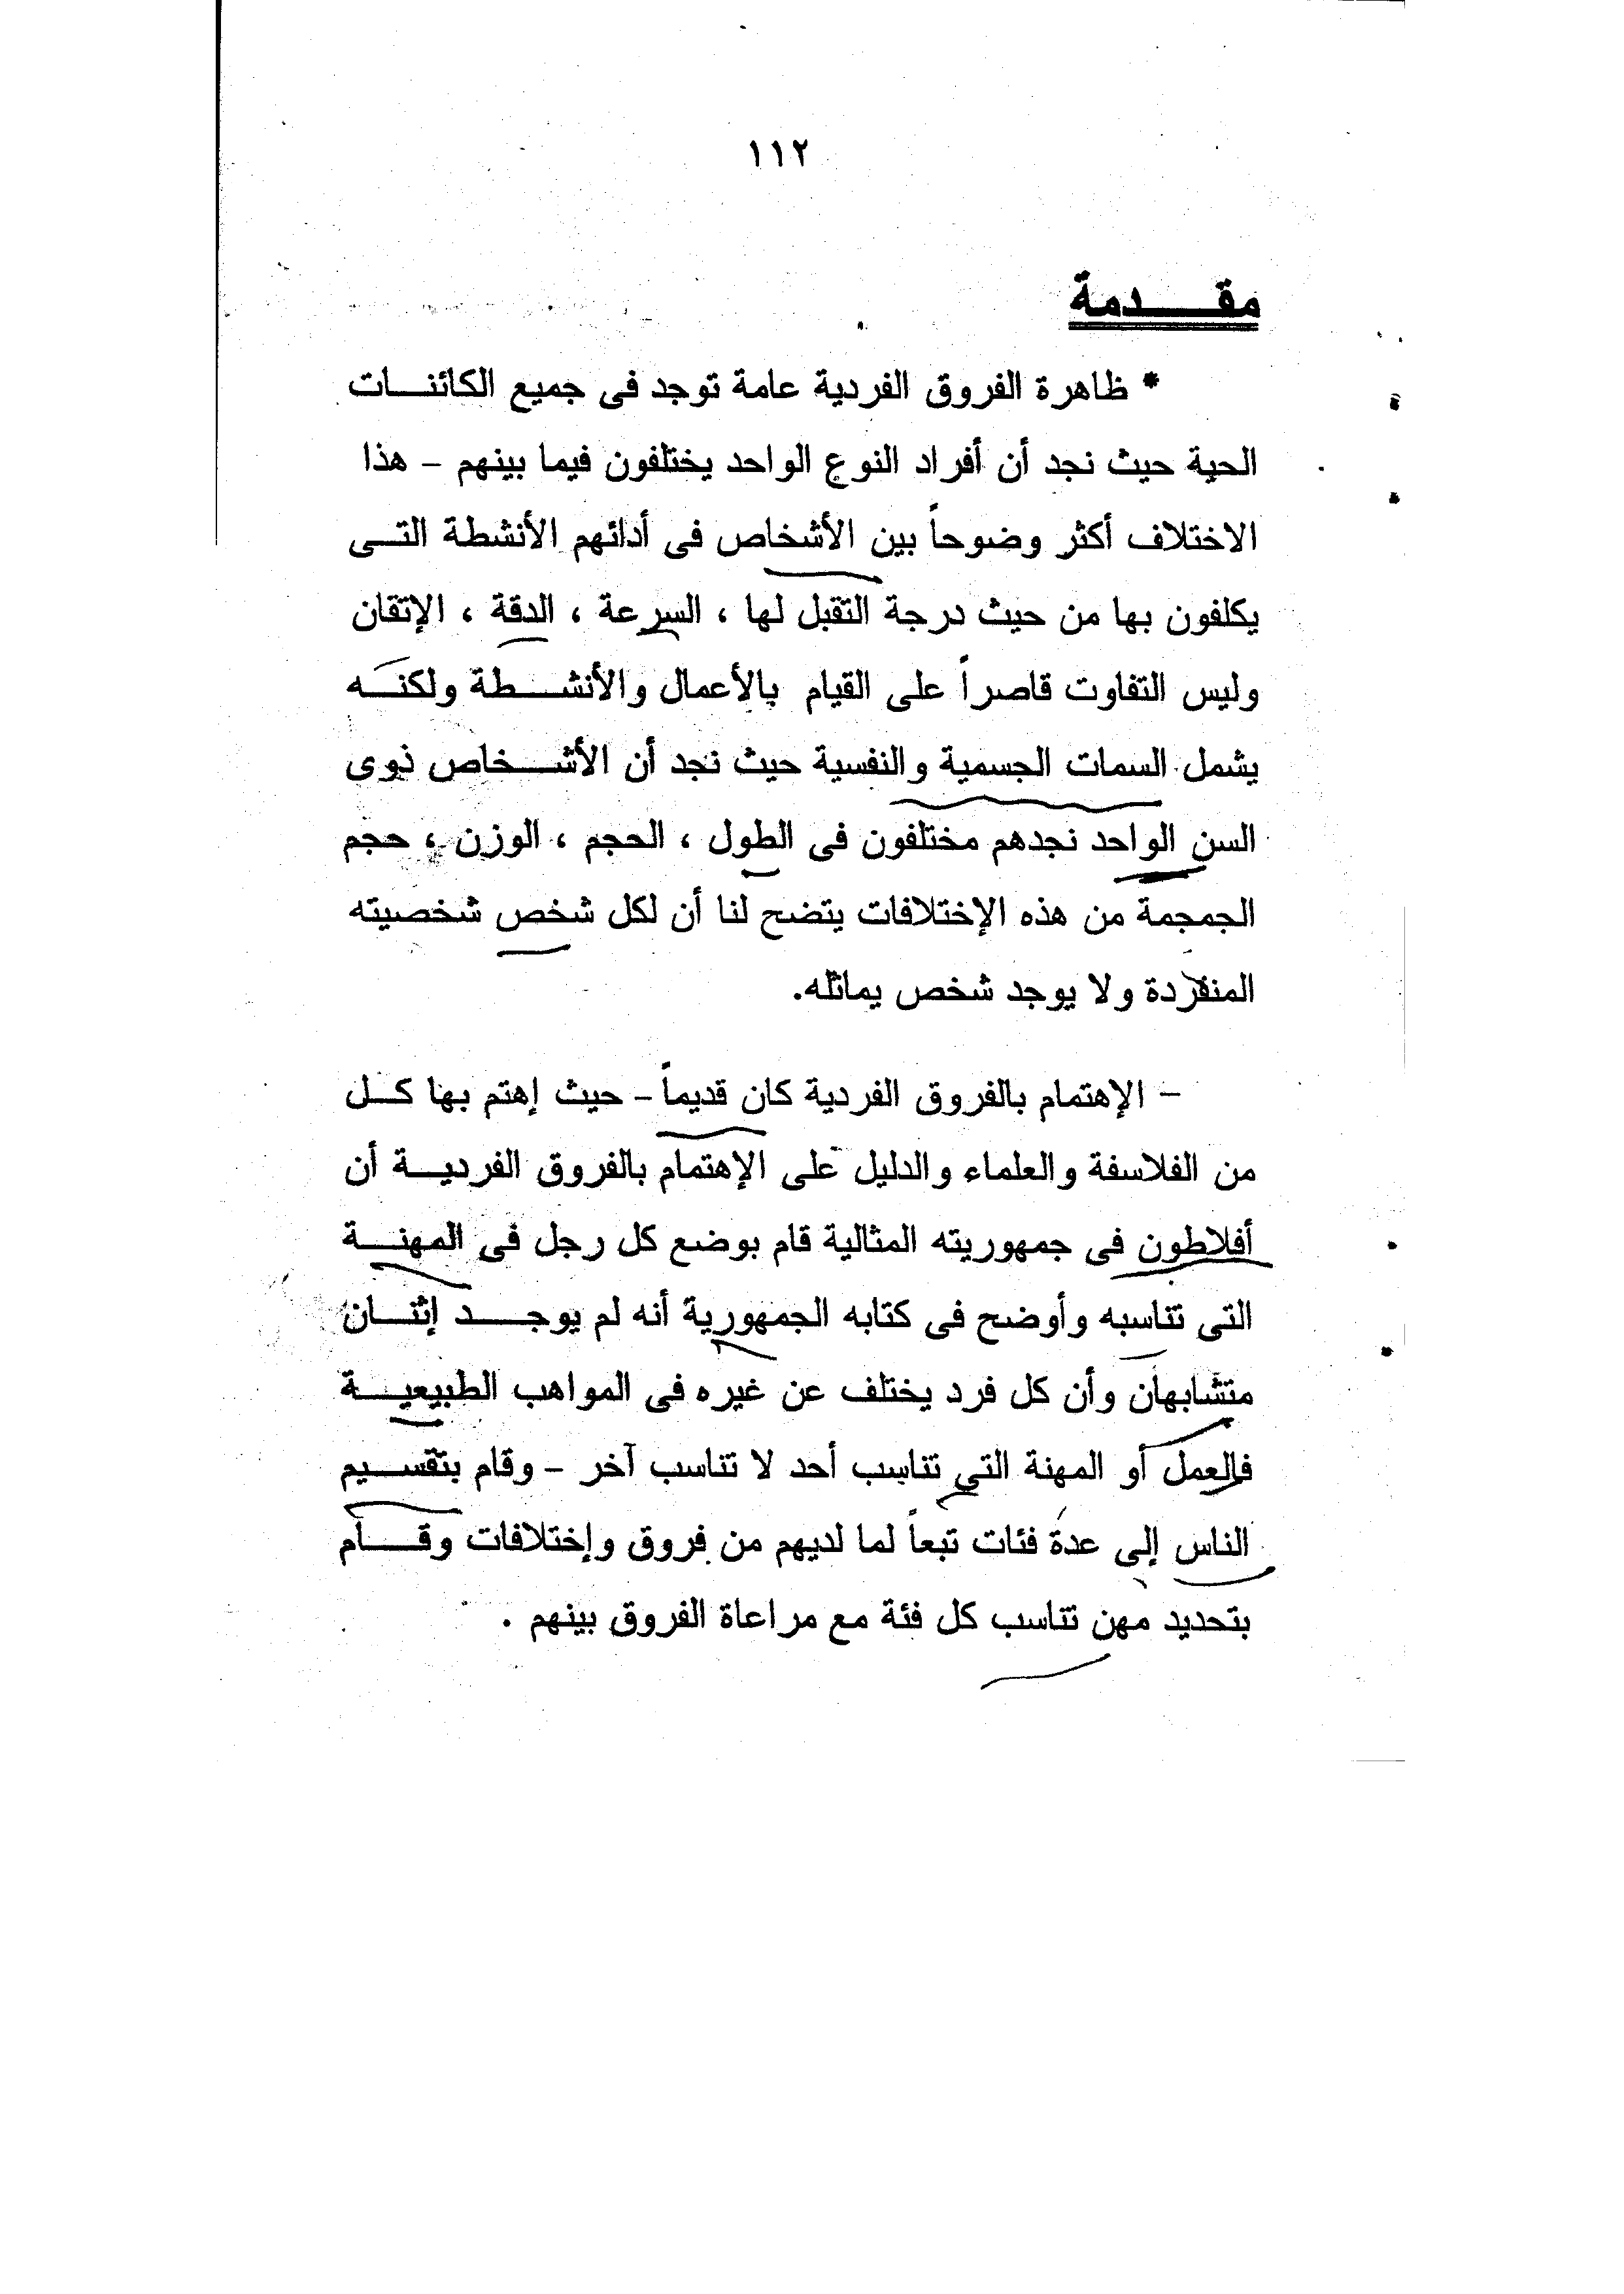 ١١٢
مقدمة
* ظاهرة الفروق الفردية عامة توجد فى جميع الكائنات
الحية حيث نجد أن أفراد النوع الواحد يختلفون فيما بينهم – هذا
الاختلاف أكثر وضوحاً بين الأشخاص فى أدائهم الأنشطة التى
يكلفون بها من حيث درجة التقبل لها ، السرعة ، الدقة ، الإتقان
وليس التفاوت قاصراً على القيام بالأعمال والأنشطة ولكنه
يشمل السمات الجسمية والنفسية حيث نجد أن الأشخاص ذوى
السن الواحد نجدهم مختلفون فى الطول ، الحجم ، الوزن ، حجم
الجمجمة من هذه الإختلافات يتضح لنا أن لكل شخص شخصيته
المنفردة ولا يوجد شخص يماثله.
– الإهتمام بالفروق الفردية كان قديماً – حيث إهتم بها كل
من الفلاسفة والعلماء والدليل على الإهتمام بالفروق الفردية أن
أفلاطون فى جمهوريته المثالية قام بوضع كل رجل فى المهنة
التى تتاسبه وأوضح فى كتابه الجمهورية أنه لم يوجد إثنان
متشابهان وأن كل فرد يختلف عن غيره فى المواهب الطبيعية
فالعمل أو المهنة التى تناسب أحد لا تناسب آخر – وقام بتقسيم
الناس إلى عدة فئات تبعاً لما لديهم من فروق وإختلافات وقام
بتحديد مهن تتاسب كل فئة مع مراعاة الفروق بينهم .